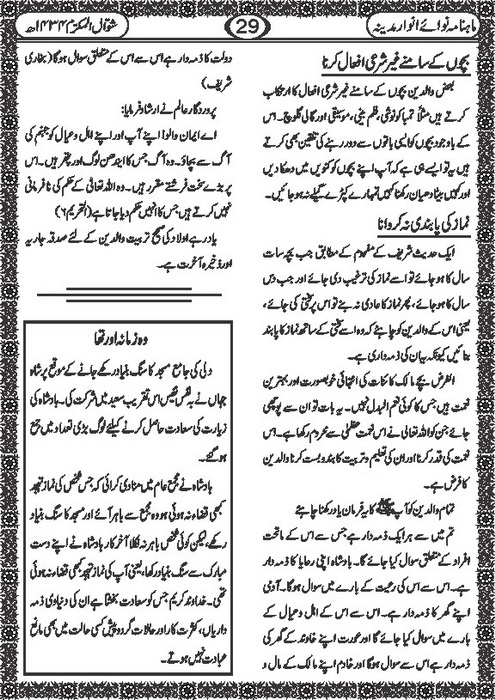 ماہنامہ نوائے انوار مدینہ
29
شوال المکرم ۱۴۳۴ھ
بچوں کے سامنے غیر شرعی افعال کرنا
بعض والدین بچوں کے سامنے غیر شرعی افعال کا ارتکاب
کرتے ہیں مثلاً تمباکو نوشی، فلم بینی، موسیقی اور گالی گلوچ۔ اس
کے باوجود بچوں کو ایسی باتوں سے دور رہنے کی تلقین بھی کرتے
ہیں یہ تو ایسے ہی ہے کہ آپ اپنے بچوں کو کنویں میں دھکا دیں
اور کہیں بیٹا دھیان رکھنا کہیں تمہارے کپڑے گیلے نہ ہو جائیں۔
نماز کی پابندی نہ کروانا
ایک حدیث شریف کے مفہوم کے مطابق جب بچہ سات
سال کا ہو جائے تو اسے نماز کی ترغیب دی جائے اور جب دس
سال کا ہو جائے، پھر نماز کا عادی نہ بنے تو اس پر سختی کی جائے،
یعنی اس کے والدین کو چاہئے کہ وہ اسے سختی کے ساتھ نماز کا پابند
بنائیں کیونکہ یہ ان کی ذمہ داری ہے۔
الغرض بچے مالک کائنات کی انتہائی خوبصورت اور بہترین
نعمت ہیں جس کا کوئی نعم البدل نہیں۔ یہ بات تو ان سے پوچھی
جائے جن کو اللہ تعالیٰ نے اس نعمت عظمیٰ سے محروم رکھا ہے۔ اس
نعمت کی قدر کرنا اور ان کی تعلیم و تربیت کا بندوبست کرنا والدین
کا فرض ہے۔
تمام والدین کو آپ ﷺ کا یہ فرمان یاد رکھنا چاہئے
تم میں سے ہر ایک ذمہ دار ہے جس سے اس کے ماتحت
افراد کے متعلق سوال کیا جائے گا۔ بادشاہ اپنی رعایا کا ذمہ دار
ہے۔ اس سے اس کی رعیت کے بارے میں سوال ہوگا۔ آدمی
اپنے گھر کا ذمہ دار ہے۔ اس سے اس کے اہل و عیال کے
بارے میں سوال کیا جائے گا اور عورت اپنے خاوند کے گھر کی
ذمہ دار ہے اس سے سوال ہوگا اور خادم اپنے مالک کے مال و
دولت کا ذمہ دار ہے اس سے اس کے متعلق سوال ہوگا (بخاری
شریف)
پروردگار عالم نے ارشاد فرمایا:
اے ایمان والو! اپنے آپ اور اپنے اہل و عیال کو جہنم کی
آگ سے بچاؤ۔ وہ آگ جس کا ایندھن لوگ اور پتھر ہیں۔ اس
پر بڑے سخت فرشتے مقرر ہیں۔ وہ اللہ تعالیٰ کے حکم کی نافرمانی
نہیں کرتے ہیں جس کا انہیں حکم دیا جاتا ہے (التحریم ۶)
یاد رہے اولاد کی صحیح تربیت والدین کے لئے صدقہ جاریہ
اور ذخیرہ آخرت ہے۔
وہ زمانہ اور تھا
دلی کی جامع مسجد کا سنگ بنیاد رکھے جانے کے موقع پر شاہ
جہاں نے بہ نفس نفیس اس تقریب سعید میں شرکت کی۔ بادشاہ کی
زیارت کی سعادت حاصل کرنے کیلئے لوگ بڑی تعداد میں جمع
ہو گئے۔
بادشاہ نے مجمع عام میں منادی کرائی کہ جس شخص کی نماز تہجد
کبھی قضاء نہ ہوئی ہو وہ مجمع سے باہر آئے اور مسجد کا سنگ بنیاد
رکھے، لیکن کوئی شخص باہر نہ نکلا آخر کار بادشاہ نے اپنے دست
مبارک سے سنگ بنیاد رکھا، یعنی آپ کی نماز تہجد کبھی قضاء نہ ہوئی
تھی۔ خداوند کریم جس کو سعادت بخشتا ہے ان کی دنیاوی ذمہ
داریاں، کثرت کار اور حادثات گردو پیش کسی حالت میں بھی مانع
عبادت نہیں ہوتے۔